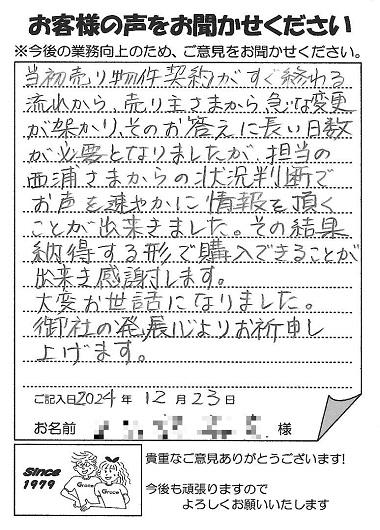 お客様の声をお聞かせください
※今後の業務向上のため、ご意見をお聞かせください。
当初売り物件契約がすぐ終わる
流れから、売り主さまから、急な変更
が架かり、そのお答えに長い日数
が必要となりましたが、担当の
西浦さまからの状況判断で
お声を速やかに情報を頂く
ことが出来きました。その結果
納得する形で購入できることが
出来き感謝します。
大変お世話になりました。
御社の発展心よりお祈申し
上げます。
ご記入日2024年12月23日
お名前 様
Since
1979
Grace
Grace
貴重なご意見ありがとうございます!
今後も頑張りますので
よろしくお願いいたします